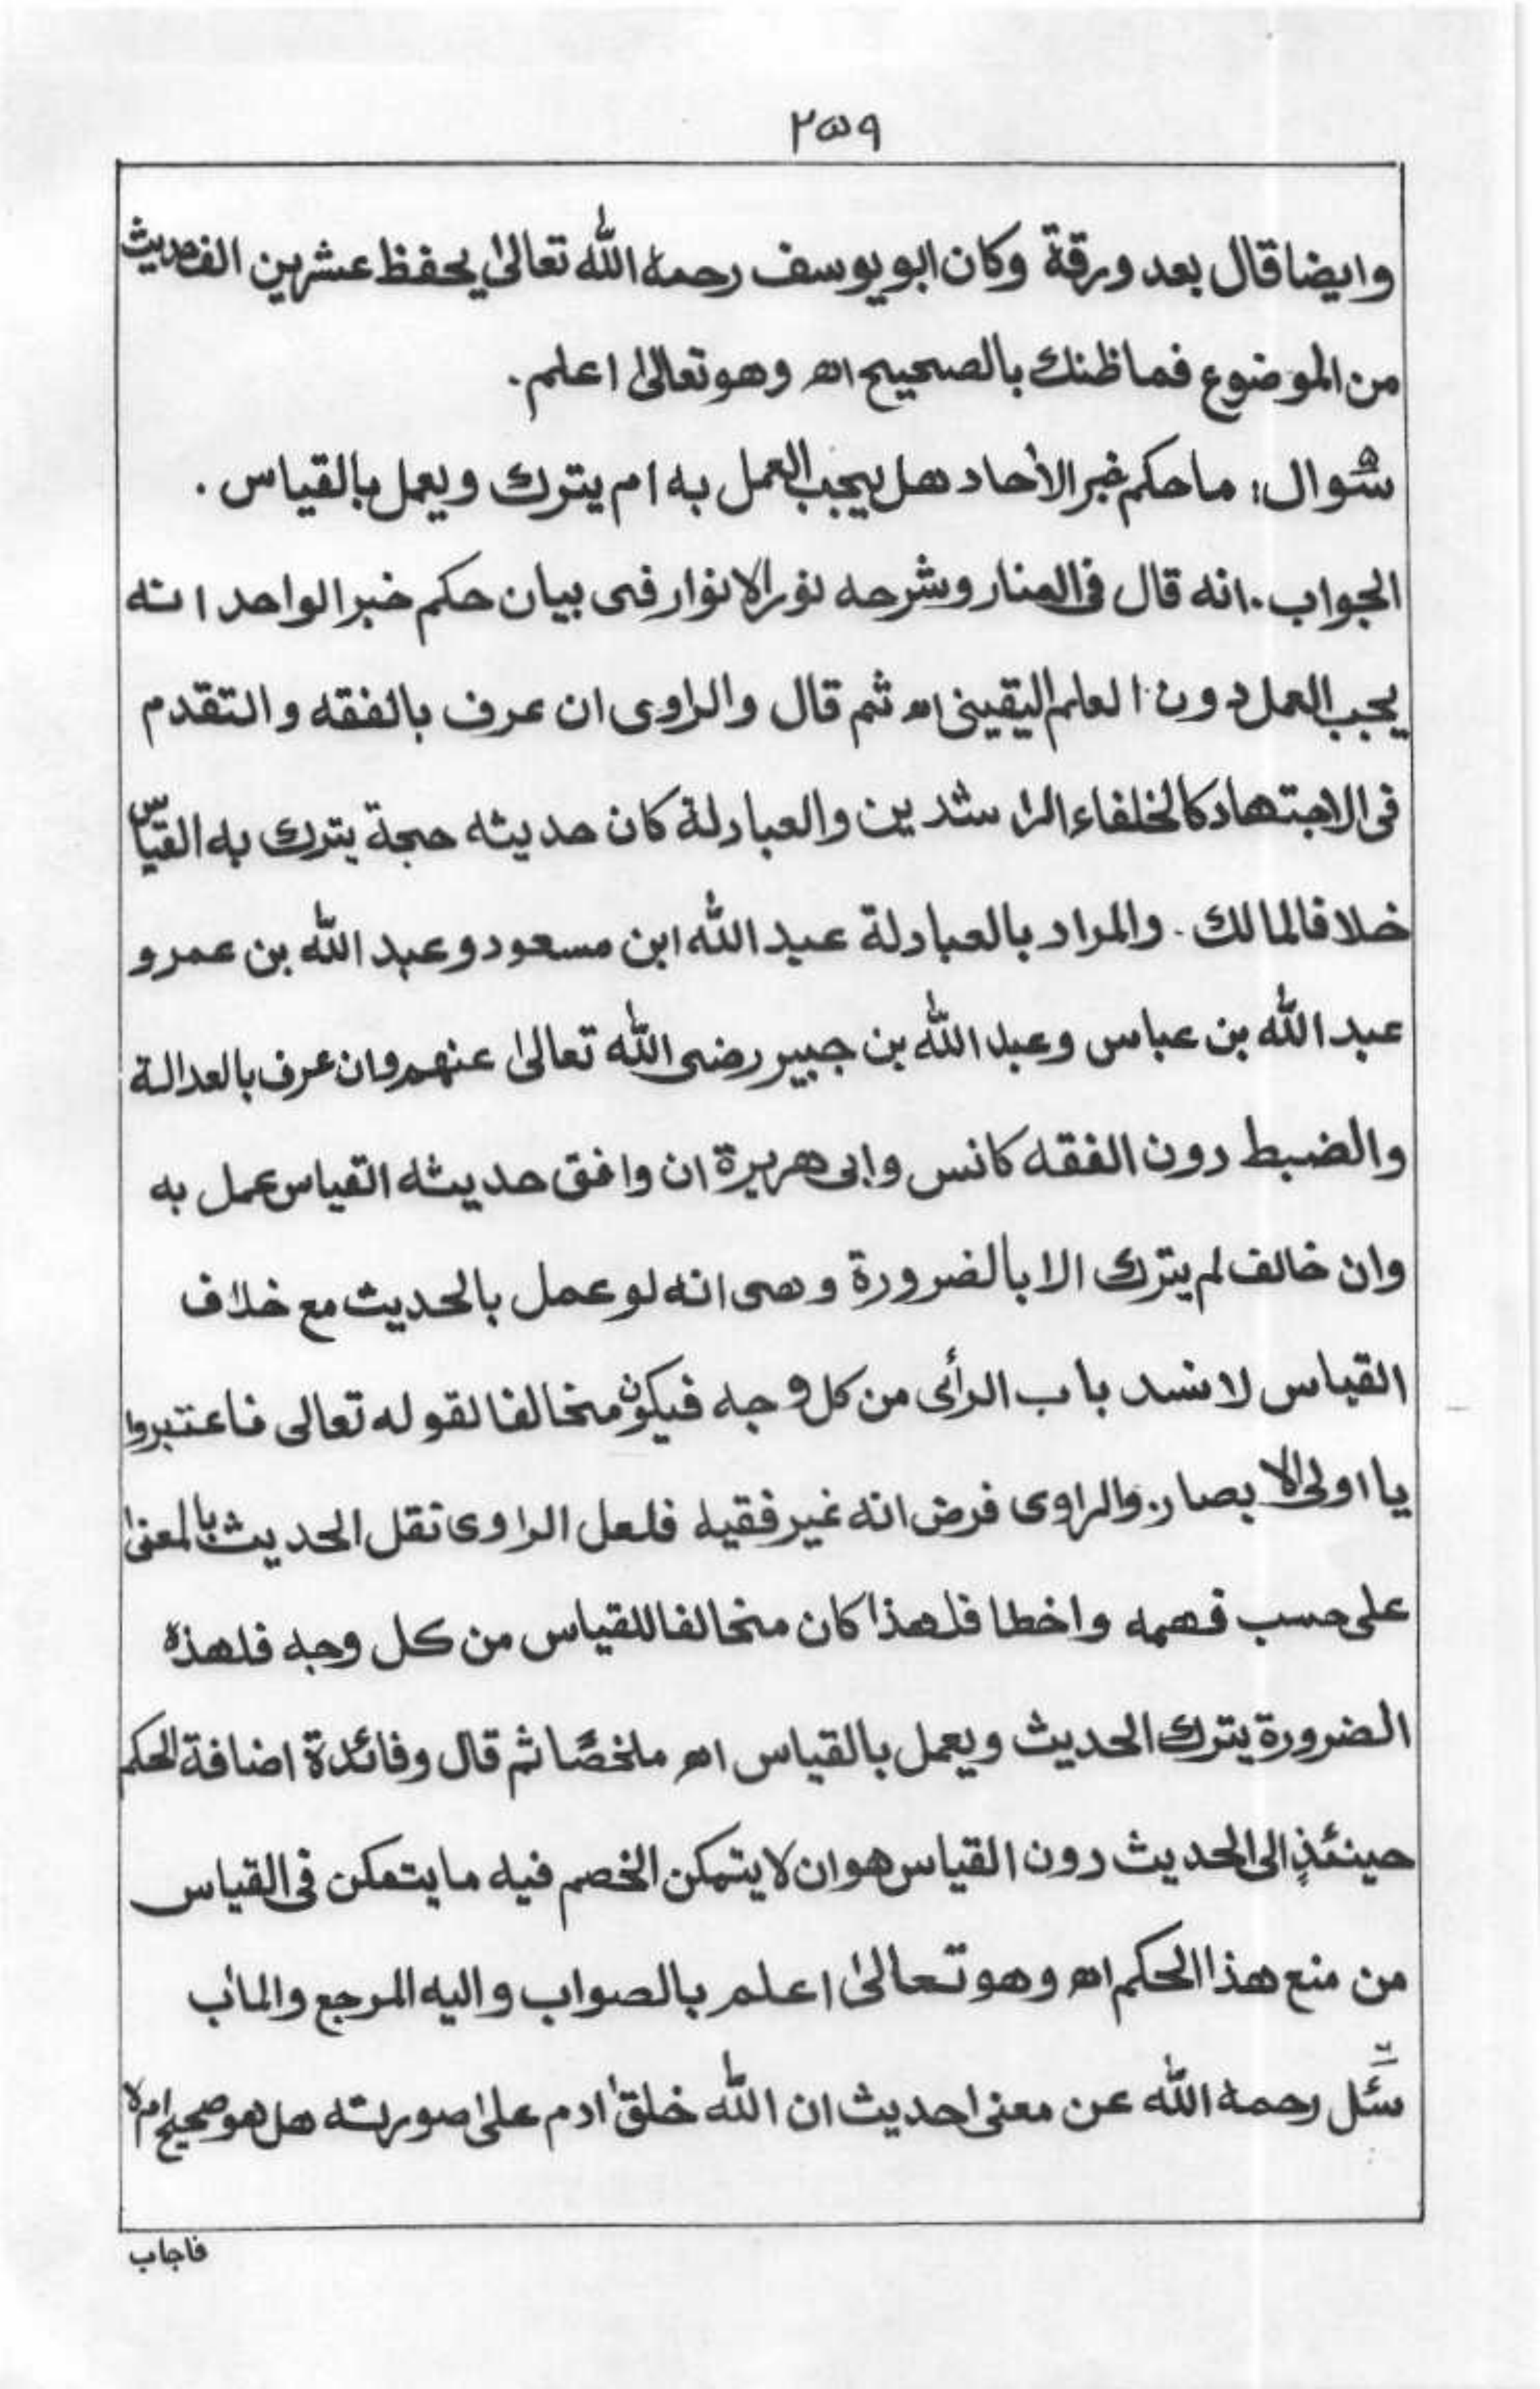 ٢٥٩
وايضا قال بعد ورقة وكان ابو يوسف رحمه الله تعالىٰ يحفظ عشرين الف حديث
من الموضوع فما ظنك بالصحيح اھ وهو تعالىٰ اعلم.
سُوال: ما حكم خبر الأحاد هل يجب العمل به ام يترك ويعمل بالقياس.
الجواب. انه قال فى المنار وشرحه نور الانوار فى بيان حكم خبر الواحد انه
يجب العمل دون العلم اليقينى اھ ثم قال والراوى ان عرف بالفقه والتقدم
فى الاجتهاد كالخلفاء الراشدين والعبادلة كان حديثه حجة يترك به القياس
خلافا لمالك. والمراد بالعبادلة عبد الله ابن مسعود وعبد الله بن عمر و
عبد الله بن عباس وعبد الله بن جبير رضى الله تعالىٰ عنهم وان عرف بالعدالة
والضبط دون الفقه كانس وابى هريرة ان وافق حديثه القياس عمل به
وان خالف لم يترك الا بالضرورة وهى انه لو عمل بالحديث مع خلاف
القياس لانسد باب الرأى من كل وجه فيكون مخالفا لقوله تعالى فاعتبروا
يا اولى الابصار. والراوى فرض انه غير فقيه فلعل الراوى نقل الحديث بالمعنىٰ
على حسب فهمه واخطا فلهذا كان مخالفا للقياس من كل وجه فلهذه
الضرورة يترك الحديث ويعمل بالقياس اھ ملخصًا ثم قال وفائدة اضافة الحكم
حينئذٍ الى الحديث دون القياس هو ان لا يتمكن الخصم فيه ما يتمكن فى القياس
من منع هذا الحكم اھ وهو تعالىٰ اعلم بالصواب واليه المرجع والماٰب
سُئل رحمه الله عن معنى احديث ان الله خلق اٰدم علىٰ صورته هل هو صحيح ام لا
فاجاب